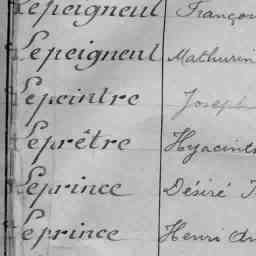 Lepeigneul
Lepeigneul Mathurin
Lepeintre Joseph
Leprêtre
Leprince Désiré
Leprince Henri